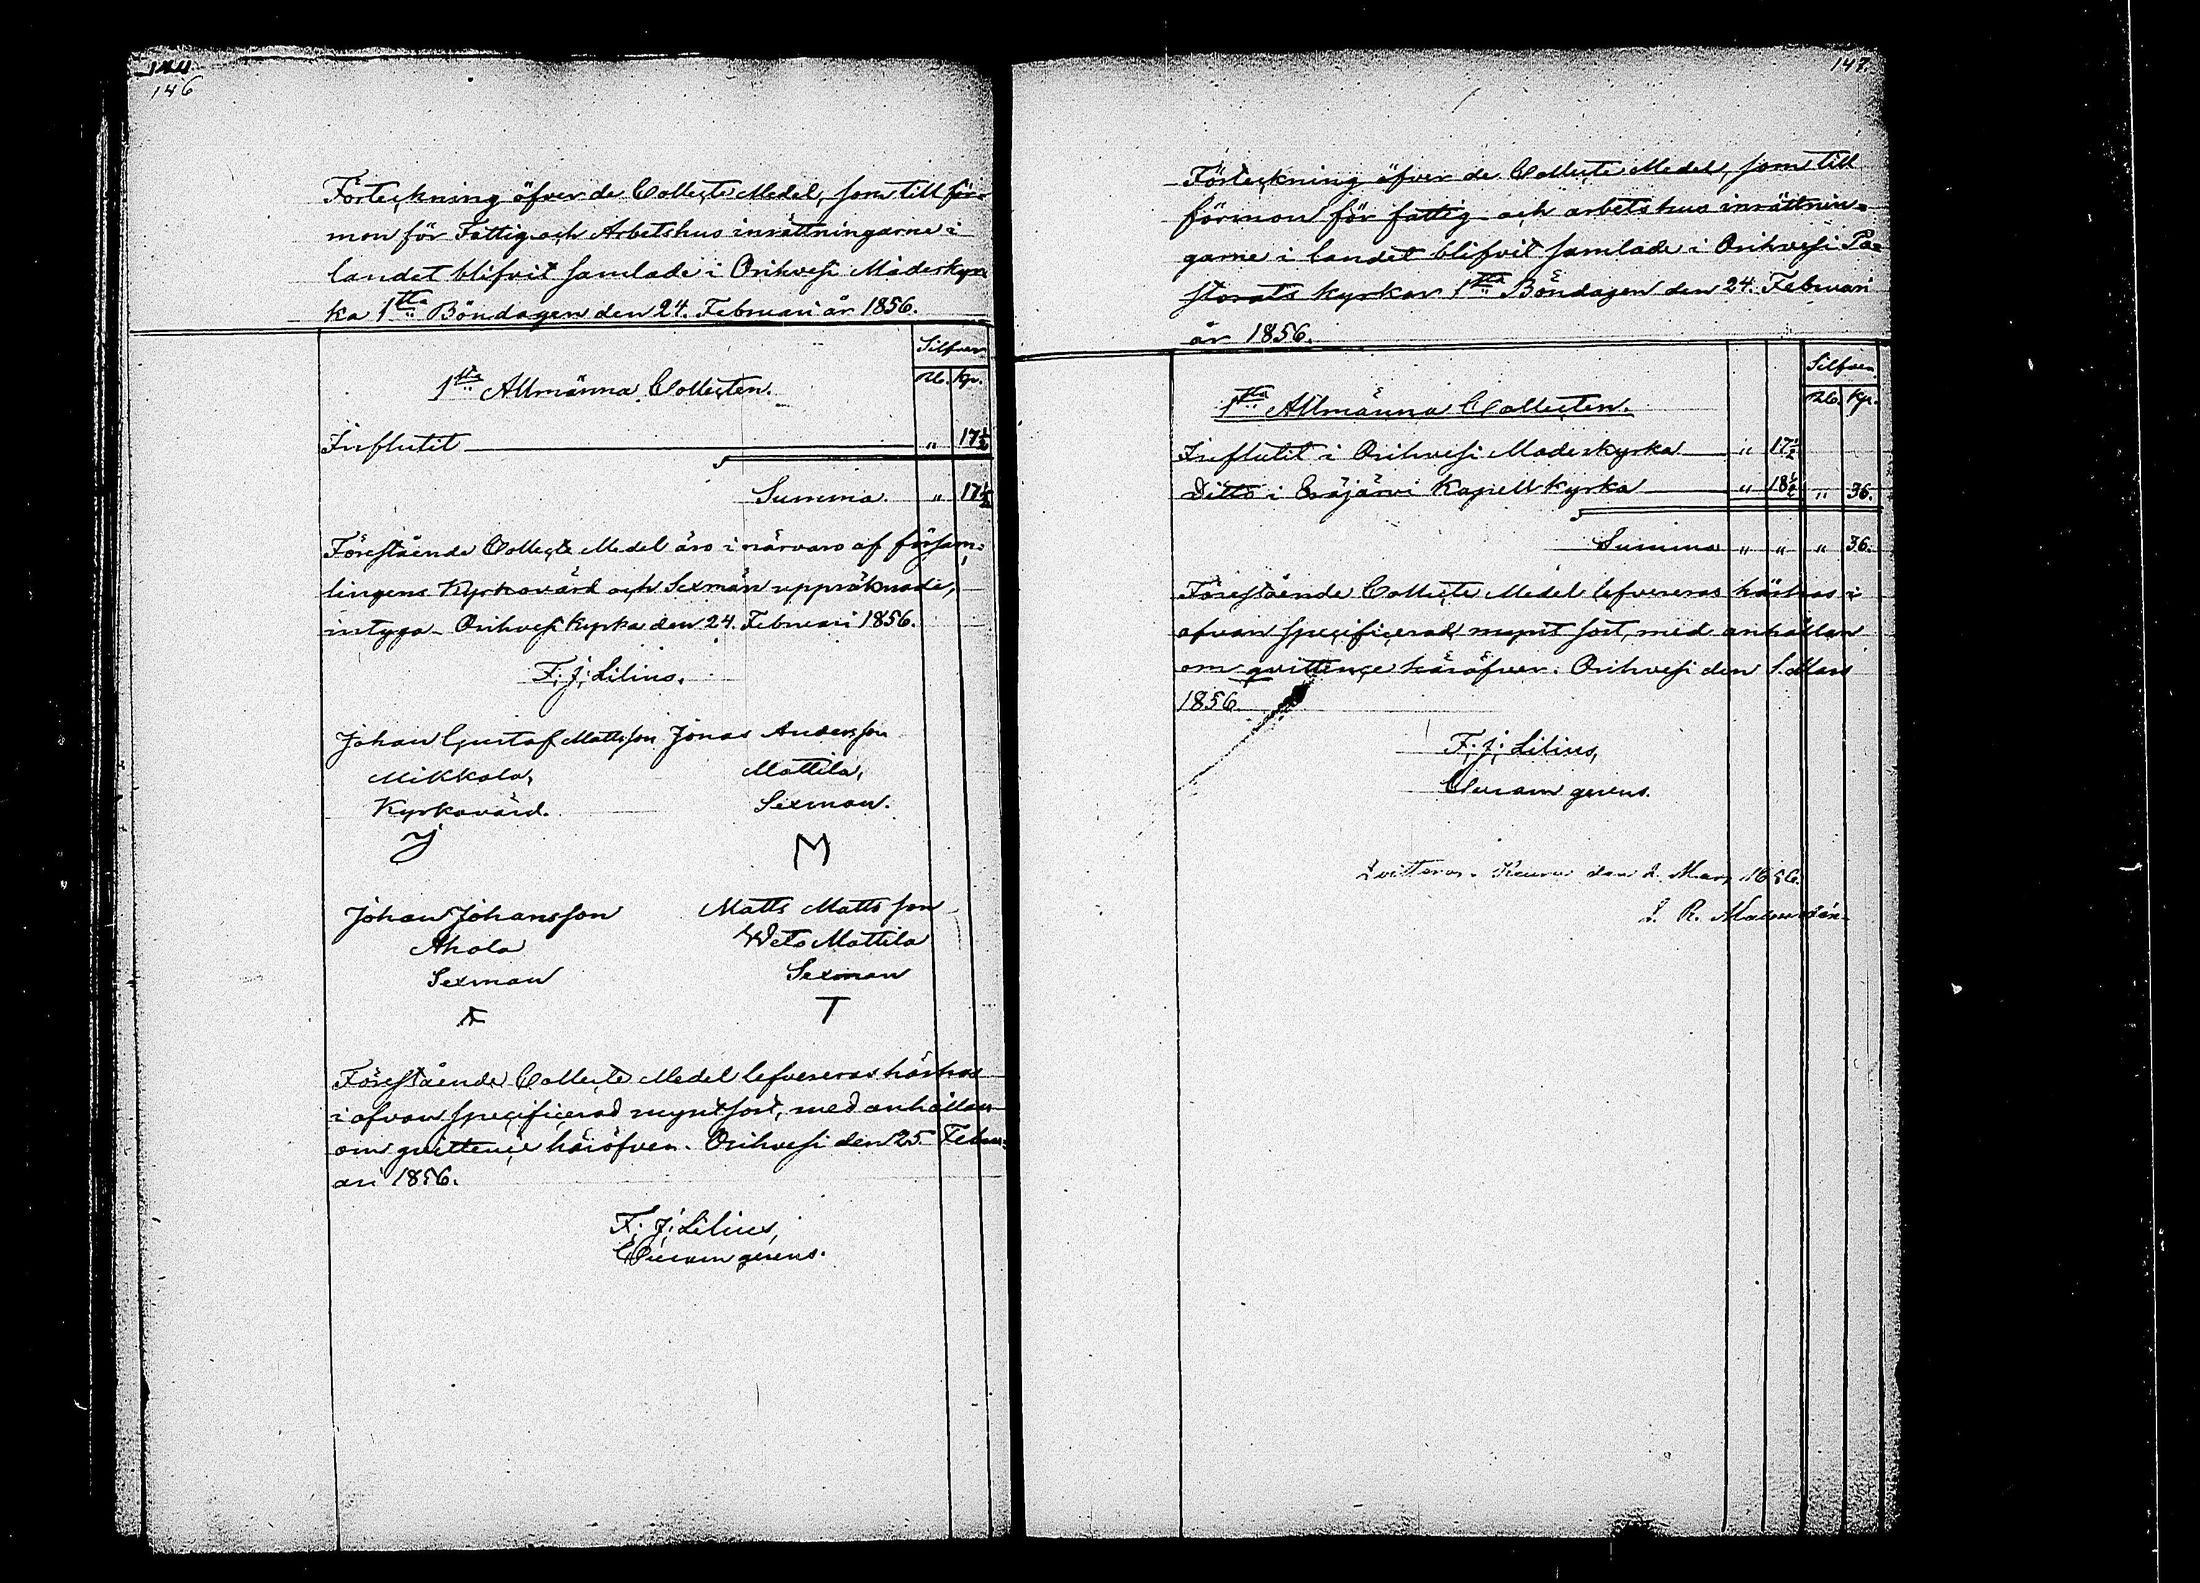 146
Förteckning öfver de Collecte Medel, som till för-
mon för Fattig och Arbetshus inrättningarne i
landet blifvit samlade i Orihvesi Moderkyr-
ka 1sta Böndagen den 24. Februari år 1856.
Silfver
Rb. Kp.
1sta Allmänna Collecten.
Influtit " 17½
Summa. " 17½
Förestående Collecte Medel äro i närvaro af försam-
lingens Kyrkovärd och Sexmän uppräknade,
intyga Orihvesi kyrka den 24. Februari 1856.
F. J. Lilius.
Johan Gustaf Mattsson Jonas Andersson
Mikkola, Mattila,
Kyrkovärd. Sexman.
M
Johan Johansson Matts Mattsson
Ahola Mattila
Sexman Sexman
T
Förestående Collecte Medel lefvereras härhos
i ofvan specificerad myntsort, med anhållan
om qvittence häröfver. Orihvesi den 25. Febru-
ari 1856.
F. J. Lilius,
Curam gerens.
147.
Förteckning öfver de Collecte Medel, som till
förmon för fattig och arbetshus inrättnin-
garne i landet blifvit samlade i Orihvesi Pa-
storats kyrkor 1sta Böndagen den 24. Februari
år 1856.
Silfver
Rb. Kp.
1sta Allmänna Collecten.
Influtit i Orihvesi Moderkyrka " 17½
Ditto i Eräjärvi Kapell kyrka " 18½ " 36.
Summa " " " 36.
Förestående Collecte Medel lefvereras härhos i
ofvan specificerad mynt sort, med anhållan
om qvittence häröfver. Orihvesi den 1. Mars
1856.
F. J. Lilius,
Curam gerens.
Qvitteras. den 2. Mars 1856.
R.